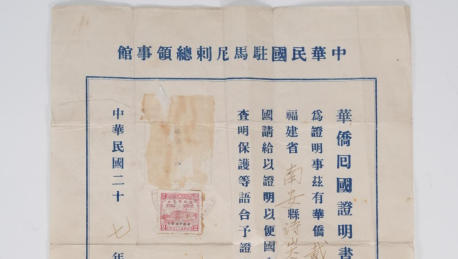 中華民國駐馬尼剌總領事館
華僑囘國證明書
為證明事茲有華僑戴
福建省南安縣詩山
國請給以證明以便國
查明保護等語合予證
中華民國二十七年